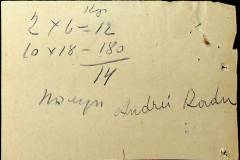 Kgr
2 × 6 = 12
10 × 18 - 180
14
Andrei Radu